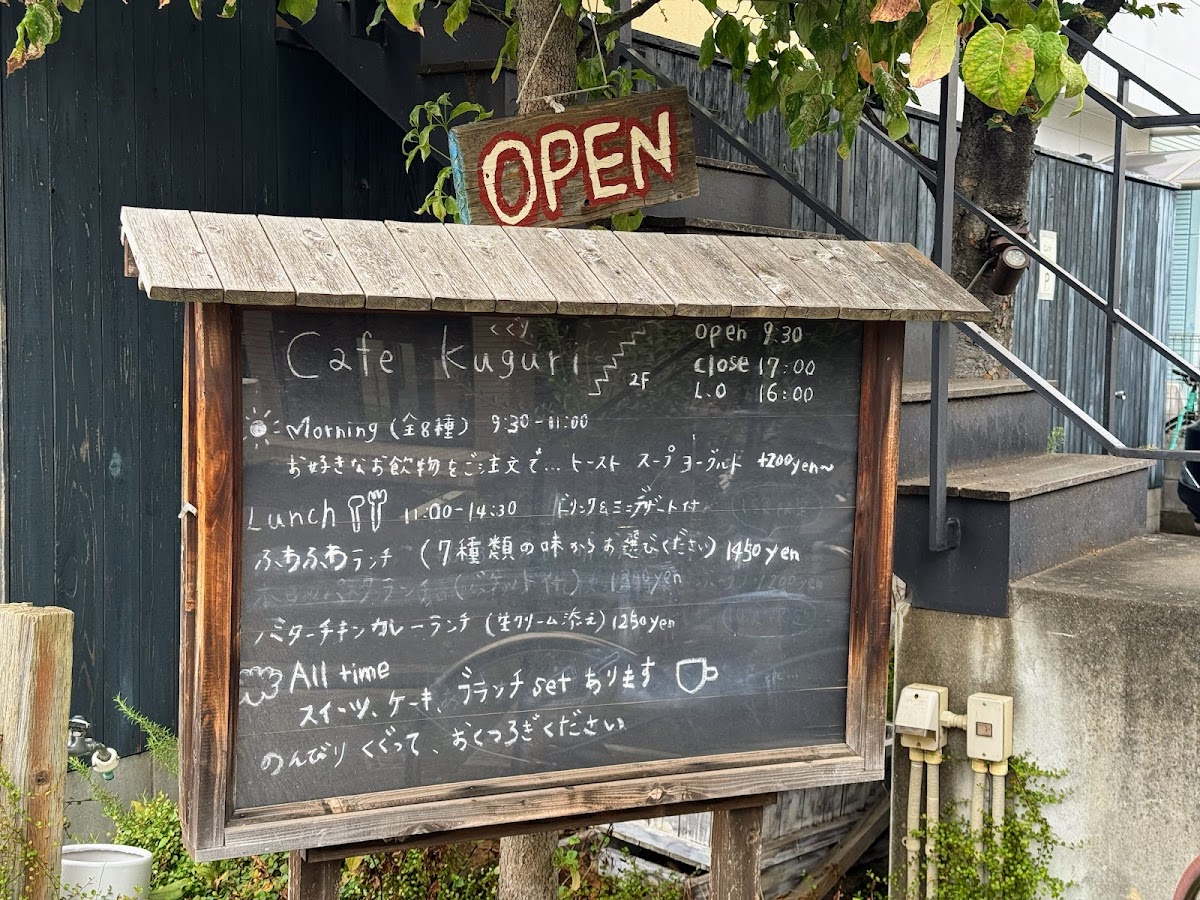 OPEN
くぐり
Cafe Kuguri 2F
open 9:30
close 17:00
L.O 16:00
Morning (全8種) 9:30-11:00
お好きなお飲物をご注文で... トースト スープ ヨーグルト +200yen~
Lunch 11:00-14:30 ドリンク&ミニデザート付
ふわふわランチ (7種類の味からお選びください) 1450yen
バターチキンカレーランチ (生クリーム添え) 1250yen
All time
スイーツ、ケーキ、ブランチset あります
のんびりくぐって、おくつろぎください